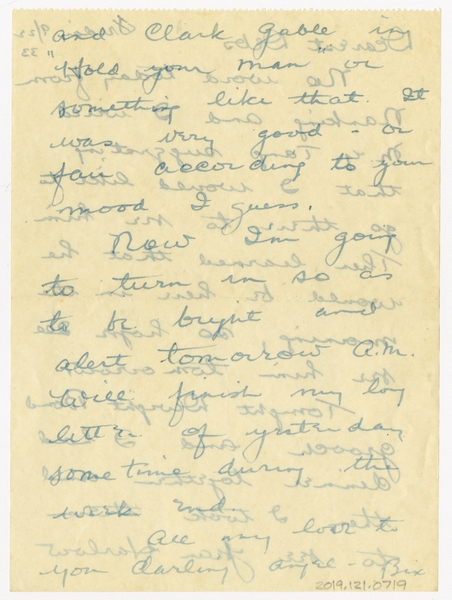 and Clark Gable in
"Hold your man" or
something like that. It
was very good - or
fair according to your
mood I guess.
Now I'm going
to turn in so as
to be bright and
alert tomorrow A.M.
Will finish my long
letter of yesterday
sometime during the
week end.
All my love to
you darling angel - Bix
2019.121.0719